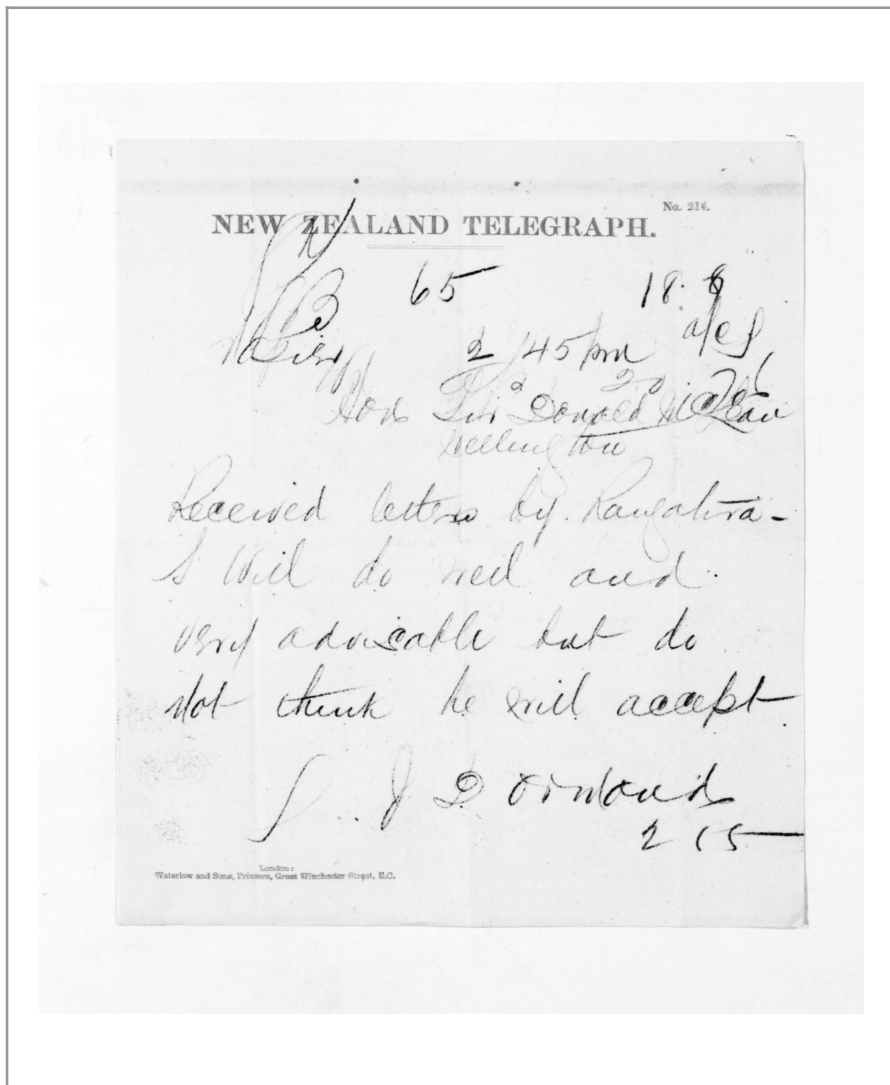 No. 214.
NEW ZEALAND TELEGRAPH.
65 18.
Napier 2/45 pm
Hon Sir Donald McLean
Wellington
Received letters by Rangatira -
S will do well and
very advisable but do
not think he will accept
J D Ormond
2 15
London:
Waterlow and Sons, Printers, Great Winchester Street, E.C.